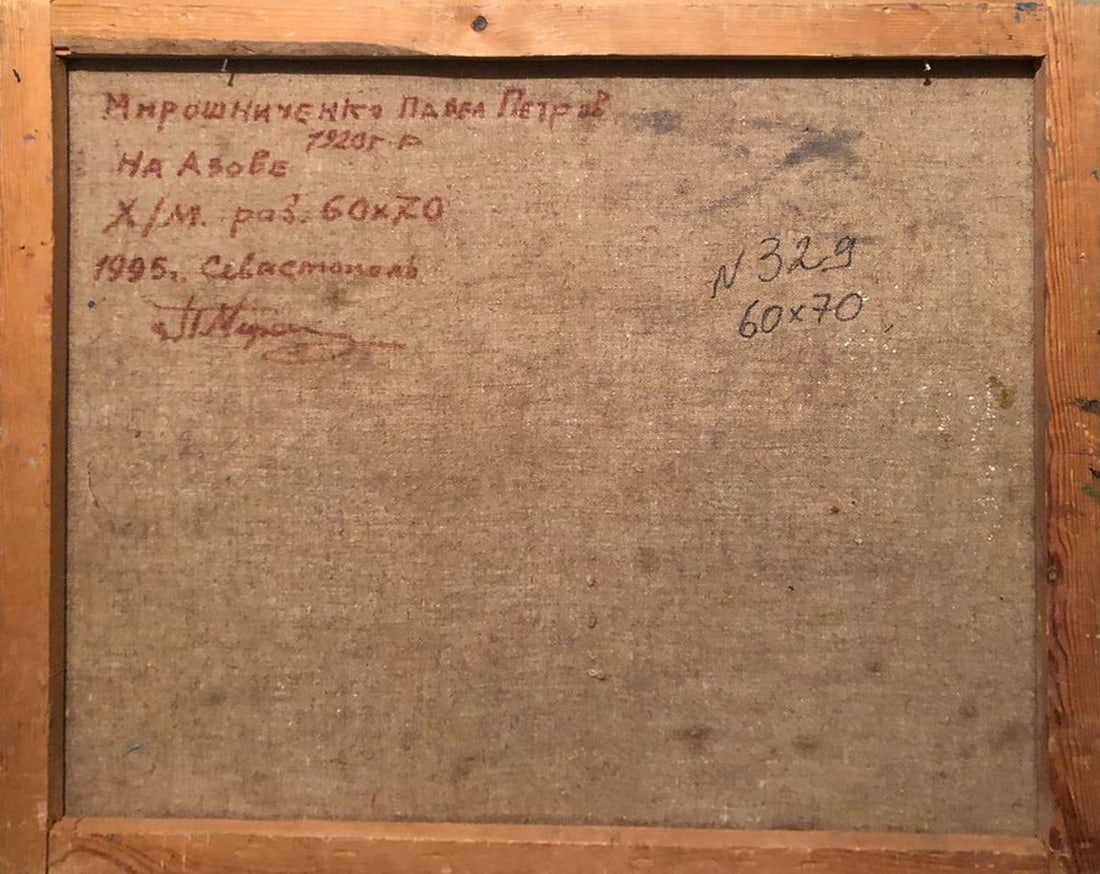 Мирошниченко Павел Петров
1920г. р
На Азове
Х/М. раз. 60х70
1995г. Севастополь
N 329
60х70